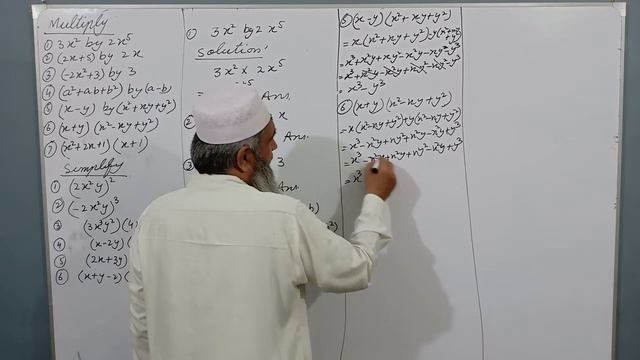 Multiply
① 3x² by 2x⁵
② (2x+5) by 2x
③ (-2x²+3) by 3
④ (a²+ab+b²) by (a-b)
⑤ (x-y) by (x²+xy+y²)
⑥ (x+y) (x²-xy+y²)
⑦ (x²+2x+1) (x+1)
Simplify
① (2x²y)²
② (-2x²y)³
③ (3x³y²) (4
④ (x-2y) (
⑤ (2x+3y)
⑥ (x+y-2) (
① 3x² by 2x⁵
Solution:
3x² × 2x⁵
Ans.
②
Ans.
③ 3
Ans.
b)
⑤ (x-y) (x²+xy+y²)
= x(x²+xy+y²) -y(x²+xy+y²)
= x³+x²y+xy²-x²y-xy²-y³
= x³+x²y-x²y+xy²-xy²-y³
= x³-y³
⑥ (x+y) (x²-xy+y²)
= x(x²-xy+y²)+y(x²-xy+y²)
= x³-x²y+xy²+x²y-xy²+y³
= x³-x²y+x²y+xy²-xy²+y³
= x³